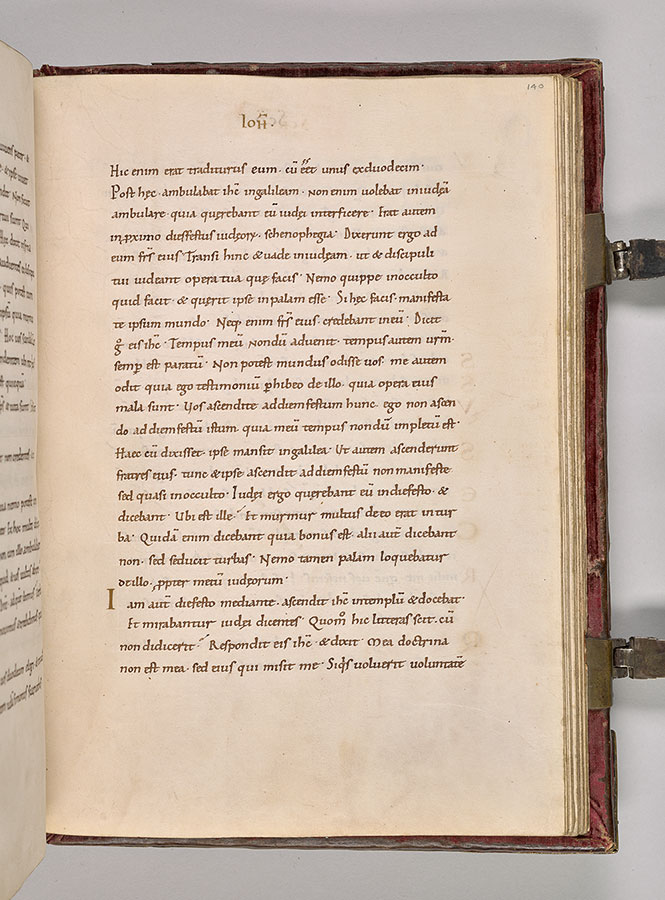 140
IOH̄.
Hic enim erat traditurus eum. cū ēēt unus exduodecim.
Post hęc. ambulabat ihc̄ ingalileam. Non enim volebat iniudęā
ambulare. quia querebant eū iudęi interficere. Erat autem
inproximo diesfestus iudęoꝝ. schenophegia. Dixerunt ergo ad
eum frs̄ eius. Transi hinc & uade iniudęam. ut & discipuli
tui uideant opera tua quę facis. Nemo quippe inocculto
quid facit. & quęrit ipse inpalam esse. Si hęc facis. manifesta
te ipsum mundo. Neqꝫ enim frs̄ eius. credebant ineū. Dicit
gͦ eis ihc̄. Tempus meū nondū aduenit. tempus autem urm̄.
semp̄ est paratū. Non potest mundus odisse uos. me autem
odit. quia ego testimoniū phibeo de illo. quia opera eius
mala sunt. Uos ascendite addiemfestum hunc. ego non ascen
do addiemfestū istum. quia meū tempus nondū impletū est.
Haec cū dixisset. ipse mansit ingalilea. Ut autem ascenderunt
fratres eius. tunc & ipse ascendit addiemfestū non manifeste
sed quasi inocculto. Iudęi ergo querebant eū indiefesto. &
dicebant. Ubi est ille. Et murmur multus deeo erat intur
ba. Quidā enim dicebant quia bonus est. alii aut̄ dicebant
non. sed seducit turbas. Nemo tamen palam loquebatur
deillo. ꝓpter metū iudęorum.
Iam aut̄ diefesto mediante. ascendit ihc̄ intemplū & docebat.
Et mirabantur iudęi dicentes. Quomͦ hic litteras scit. cū
non didicerit. Respondit eis ihc̄. & dixit. Mea doctrina
non est mea. sed eius qui misit me. Siqͥs voluerit voluntatē